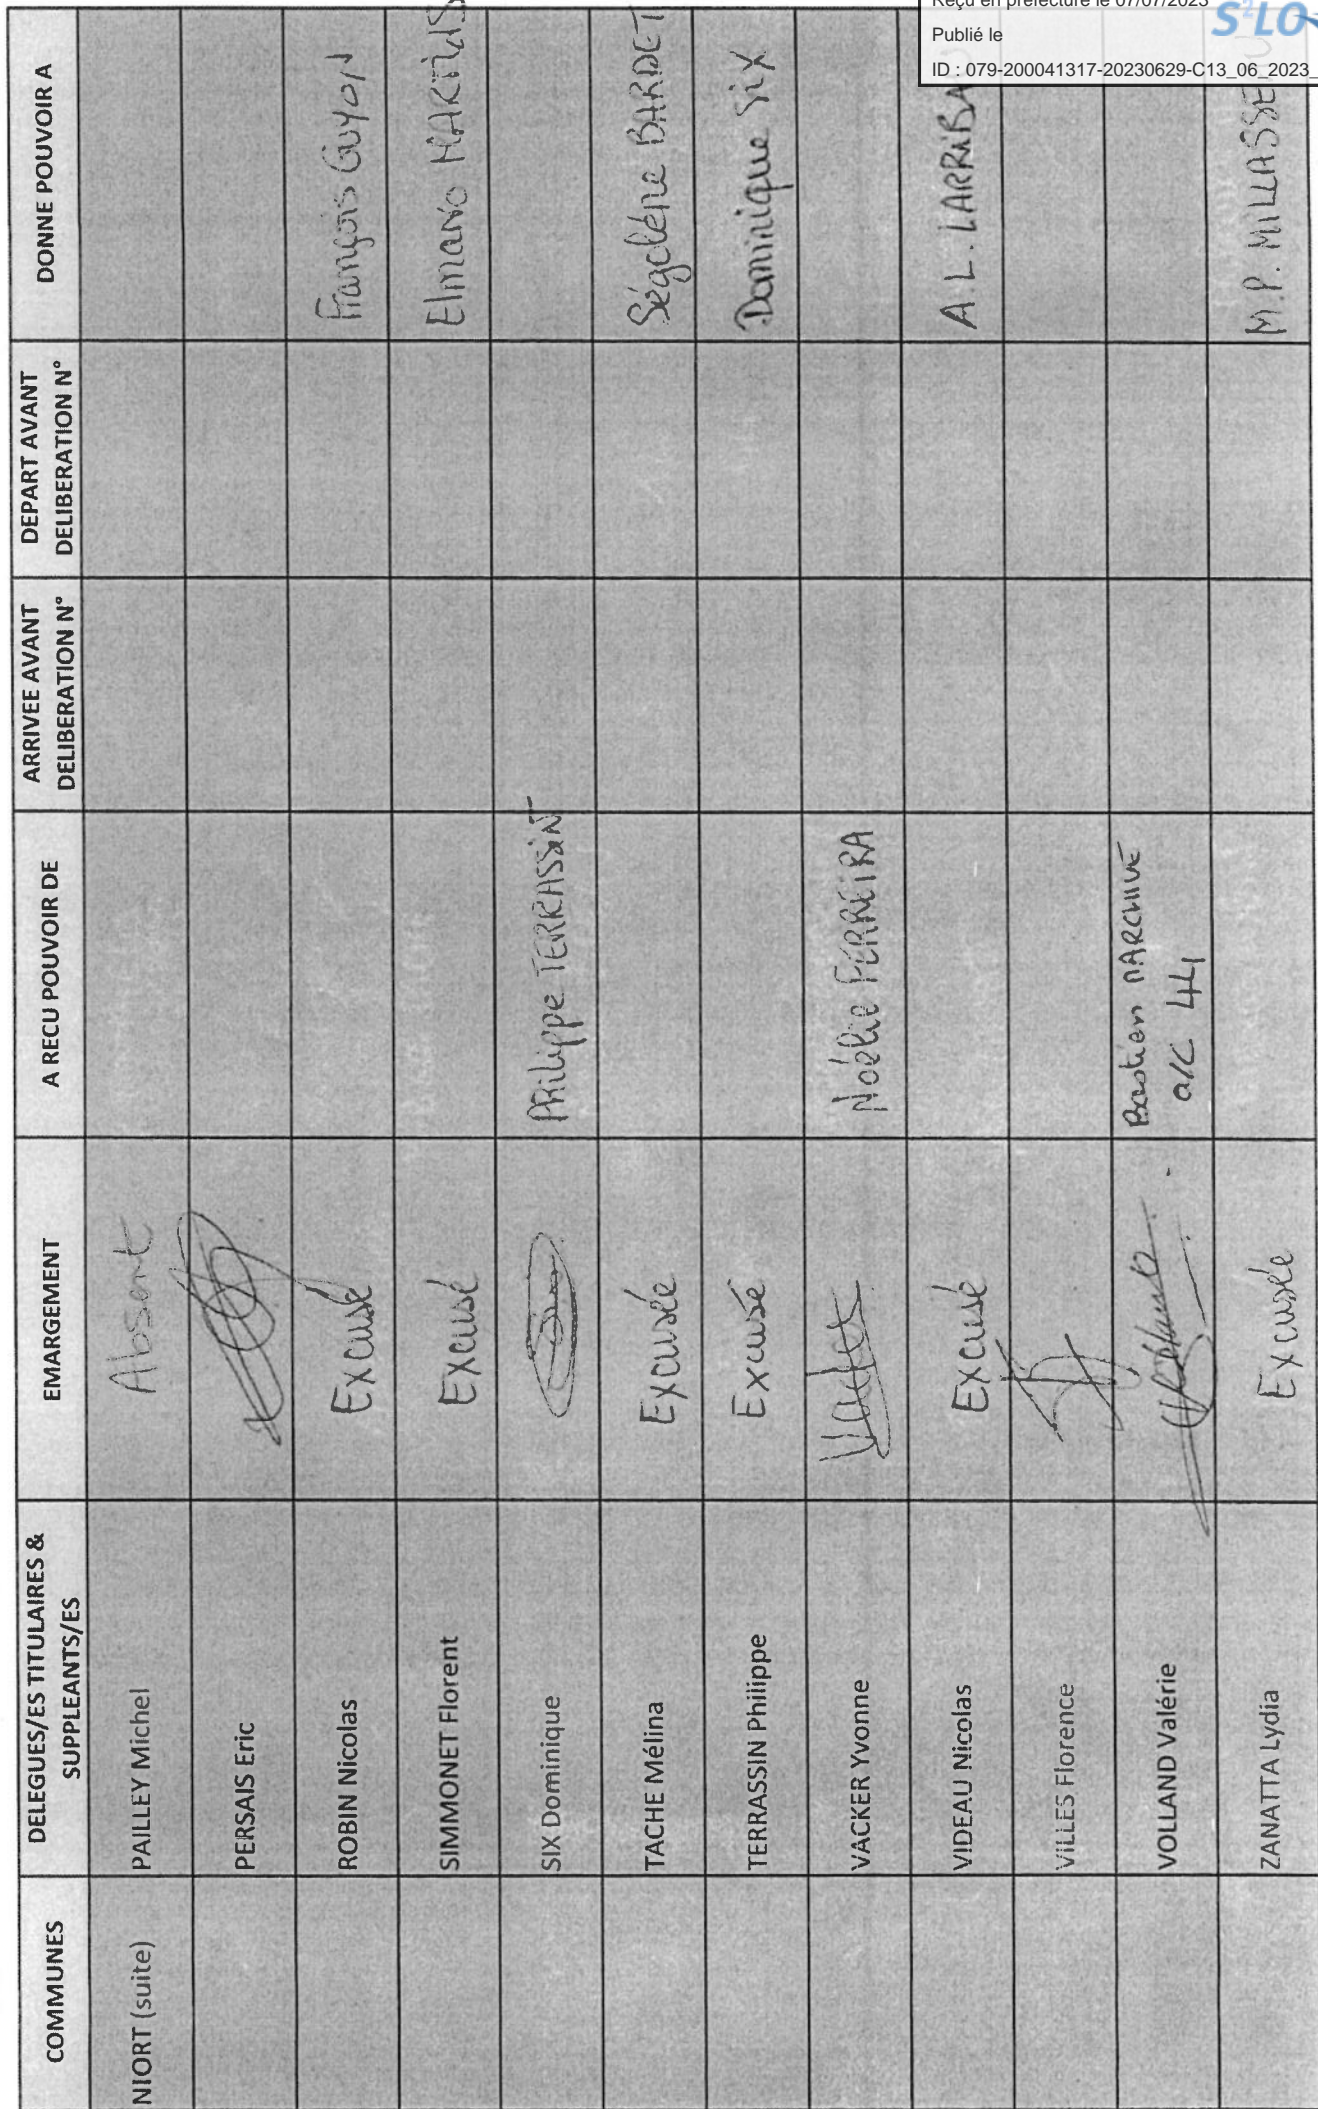 Reçu en préfecture le 07/07/2023
Publié le
S²LO
ID : 079-200041317-20230629-C13_06_2023_
COMMUNES
DELEGUES/ES TITULAIRES &
SUPPLEANTS/ES
EMARGEMENT
A RECU POUVOIR DE
ARRIVEE AVANT
DELIBERATION N°
DEPART AVANT
DELIBERATION N°
DONNE POUVOIR A
NIORT (suite)
PAILLEY Michel
Absent
PERSAIS Eric
ROBIN Nicolas
Excusé
François GUYON
SIMMONET Florent
Excusé
Elmano MARTINS
SIX Dominique
Philippe TERRASSIN
TACHE Mélina
Excusée
Ségolène BARDET
TERRASSIN Philippe
Excusé
Dominique SIX
VACKER Yvonne
Noélie FERREIRA
VIDEAU Nicolas
Excusé
A.L. LARRIBA
VILLES Florence
VOLLAND Valérie
Bastien MARCHIVE
a/c 44
ZANATTA Lydia
Excusée
M.P. MILLASSEAU